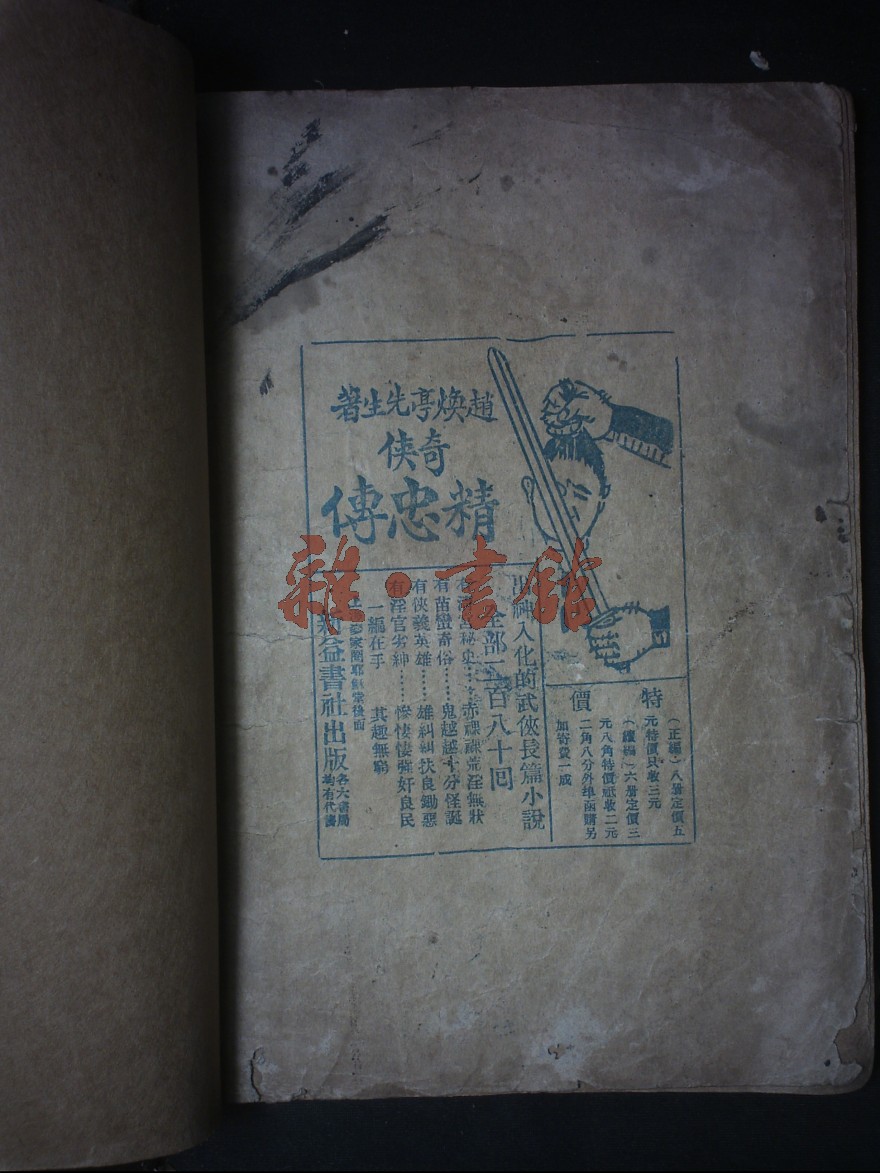 趙煥亭先生著
奇俠
精忠傳
特價
（正編）八册定價五
元特價只收三元
（續編）六册定價三
元八角特價祗收二元
二角八分外埠函購另
加寄費一成
出神入化的武俠長篇小說
全部一百八十回
秘史……赤裸裸荒淫無狀
有苗蠻奇俗……鬼越越十分怪誕
有俠義英雄……雄糾糾扶良鋤惡
有淫官劣紳……慘悽悽強奸良民
一編在手 其趣無窮
家圈耶穌堂後面
益書社出版
各大書局
均有代售
雜·書館